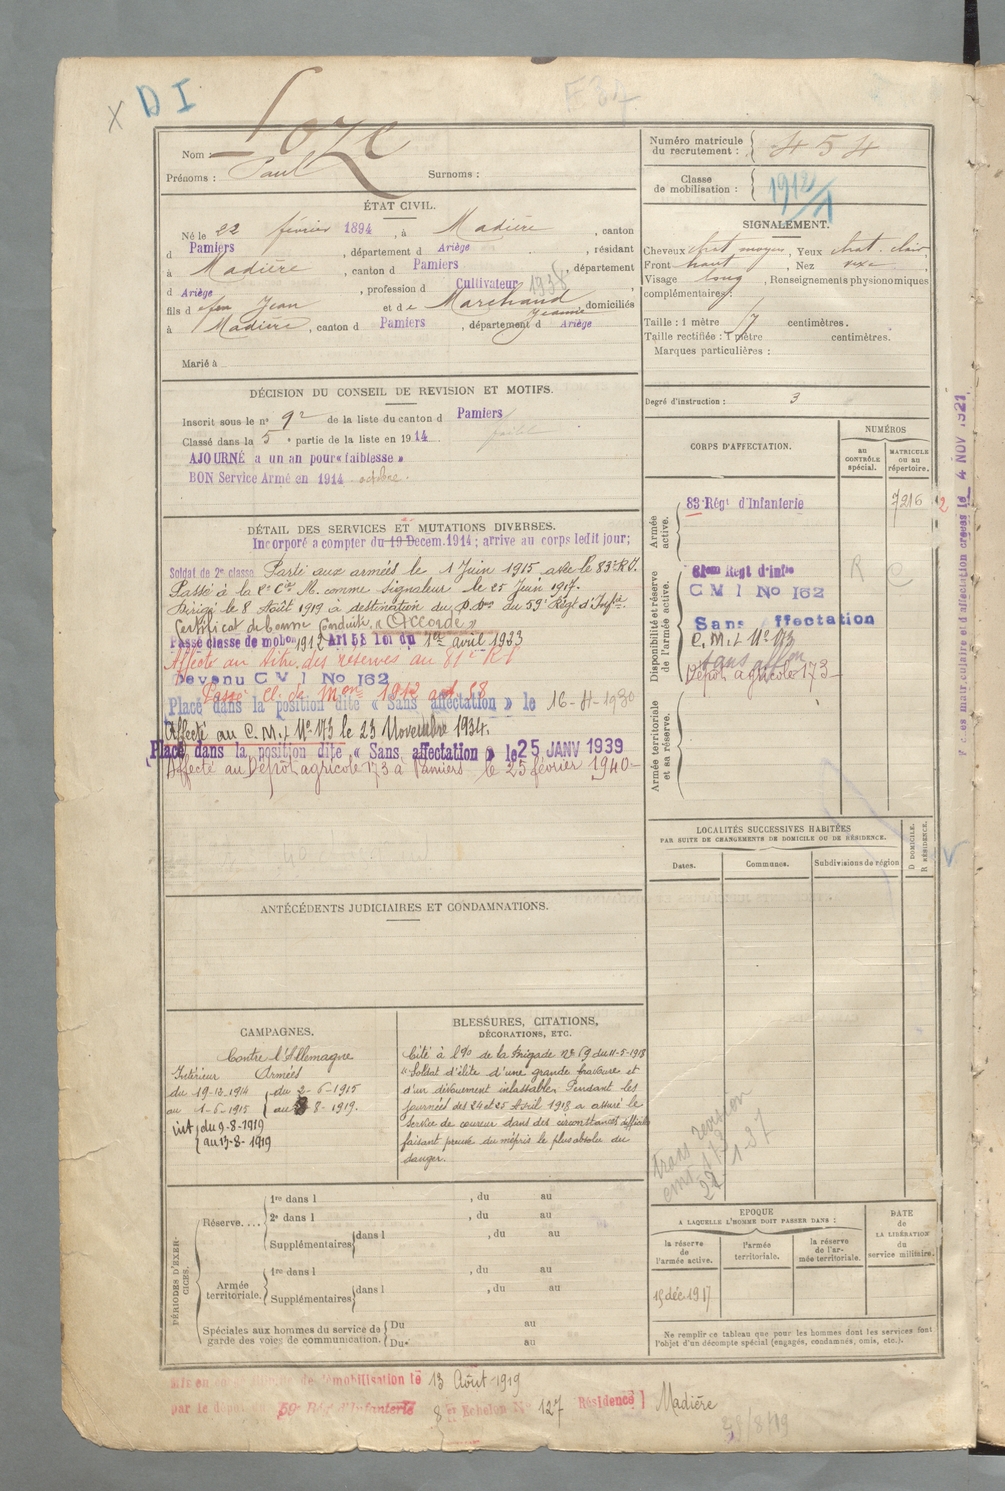 X D I
Nom : Loze
Prénoms : Paul Surnoms :
Numéro matricule du recrutement : 454
Classe de mobilisation : 1912/1
ÉTAT CIVIL.
Né le 22 février 1894, à Madière, canton
d Pamiers, département d Ariège, résidant
à Madière, canton d Pamiers, département
d Ariège, profession d Cultivateur 1938
fils d feu Jean et de Marchand Jeanne, domiciliés
à Madière, canton d Pamiers, département d Ariège
Marié à
SIGNALEMENT.
Cheveux chat moyen, Yeux chat. clair,
Front haut, Nez vexe,
Visage long, Renseignements physionomiques
complémentaires :
Taille : 1 mètre 17 centimètres.
Taille rectifiée : 1 mètre centimètres.
Marques particulières :
Degré d'instruction : 3
DÉCISION DU CONSEIL DE REVISION ET MOTIFS.
Inscrit sous le n° 92 de la liste du canton d Pamiers
Classé dans la 5e partie de la liste en 1914
AJOURNÉ a un an pour « faiblesse »
BON Service Armé en 1914 octobre.
DÉTAIL DES SERVICES ET MUTATIONS DIVERSES.
Incorporé a compter du 19 Décem. 1914 ; arrive au corps ledit jour ;
Soldat de 2e classe Parti aux armées le 1 Juin 1915 avec le 83e R.I.
Passé à la Cie M. comme signaleur le 25 Juin 1917.
Dirigé le 8 Août 1919 à destination du du 59e Régt d'Infie.
Certificat de bonne Conduite, « Accordé »
Passé classe de mobon 1912 Art 58 loi du 1er avril 1923
Affecté au titre des réserves au 81e R I
Devenu C V I No 162
Passé Cl. de Mon 1912 art 58
Placé dans la position dite « Sans affectation » le 16-4-1930
Affecté au C.M.I. No 173 le 23 Novembre 1934.
Placé dans la position dite « Sans affectation » le 25 JANV 1939
Affecté au Dépôt agricole 173 à Pamiers le 25 février 1940
CORPS D'AFFECTATION.
NUMÉROS
au CONTRÔLE spécial.
MATRICULE ou au répertoire.
Armée active.
83 Régt d'Infanterie 7216 2
Disponibilité et réserve de l'armée active.
81em Régt d'infie R C
C M I No 162
Sans affectation
C.M.I No 173
Sans affon
Dépôt agricole 173
Armée territoriale et sa réserve.
LOCALITÉS SUCCESSIVES HABITÉES
PAR SUITE DE CHANGEMENTS DE DOMICILE OU DE RÉSIDENCE.
Dates. Communes. Subdivisions de région D DOMICILE. R RÉSIDENCE.
4 NOV 1921
ANTÉCÉDENTS JUDICIAIRES ET CONDAMNATIONS.
CAMPAGNES.
Contre l'Allemagne
Intérieur Armées
du 19-12-1914 du 2-6-1915
au 1-6-1915 au 8-8-1919.
int du 9-8-1919
au 13-8-1919
BLESSURES, CITATIONS,
DÉCORATIONS, ETC.
Cité à l'Ordre de la Brigade No 69 du 11-5-1918
« Soldat d'élite d'une grande bravoure et
d'un dévouement inlassable. Pendant les
journées des 24 et 25 Avril 1918 a assuré le
service de coureur dans des circonstances difficiles
faisant preuve du mépris le plus absolu du
danger.
trans revision
cmi 173
22-1-37
PÉRIODES D'EXERCICES.
Réserve....
1re dans l , du au
2e dans l , du au
Supplémentaires dans l , du au
Armée territoriale.
1re dans l , du au
Supplémentaires dans l , du au
Spéciales aux hommes du service de garde des voies de communication.
Du au
Du au
EPOQUE
A LAQUELLE L'HOMME DOIT PASSER DANS :
la réserve de l'armée active.
l'armée territoriale.
la réserve de l'armée territoriale.
DATE de LA LIBÉRATION du service militaire.
19 déc 1917
Ne remplir ce tableau que pour les hommes dont les services font
l'objet d'un décompte spécial (engagés, condamnés, omis, etc.).
Mis en congé illimité de démobilisation le 13 Août 1919
par le dépôt du 59e Rég d'Infanterie 8 er Echelon No 127 Résidence Madière